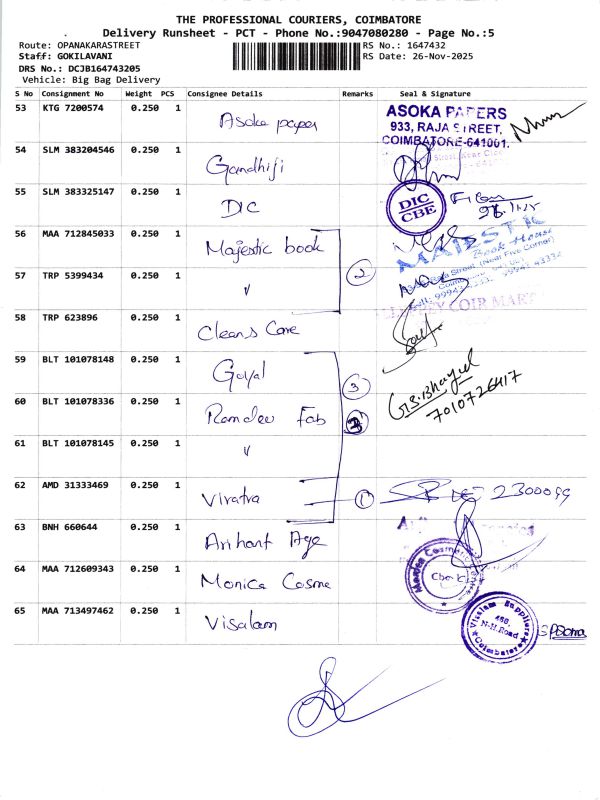 THE PROFESSIONAL COURIERS, COIMBATORE
Delivery Runsheet - PCT - Phone No.:9047080280 - Page No.:5
Route: OPANAKARASTREET
RS No.: 1647432
Staff: GOKILAVANI
RS Date: 26-Nov-2025
DRS No.: DCJB164743205
Vehicle: Big Bag Delivery
S No Consignment No Weight PCS Consignee Details Remarks Seal & Signature
53 KTG 7200574 0.250 1 Asoka paper
ASOKA PAPERS
933, RAJA STREET,
COIMBATORE-641001.
54 SLM 383204546 0.250 1 Gandhiji
55 SLM 383325147 0.250 1 DIC
DIC
CBE
56 MAA 712845033 0.250 1 Majestic book
MAJESTIC
Book House
57 TRP 5399434 0.250 1 〃 2
58 TRP 623896 0.250 1 Cleans Care
COIR MART
59 BLT 101078148 0.250 1 Goyal 3
G.S.Bhayal
7010726417
60 BLT 101078336 0.250 1 Ramdev Fab
61 BLT 101078145 0.250 1 〃
62 AMD 31333469 0.250 1 Viratra 1
63 BNH 660644 0.250 1 Arihant Age
64 MAA 712609343 0.250 1 Monica Cosme
Monica Cosmetic
65 MAA 713497462 0.250 1 Visalam
Visalam Suppliers
N.H.Road
Coimbatore